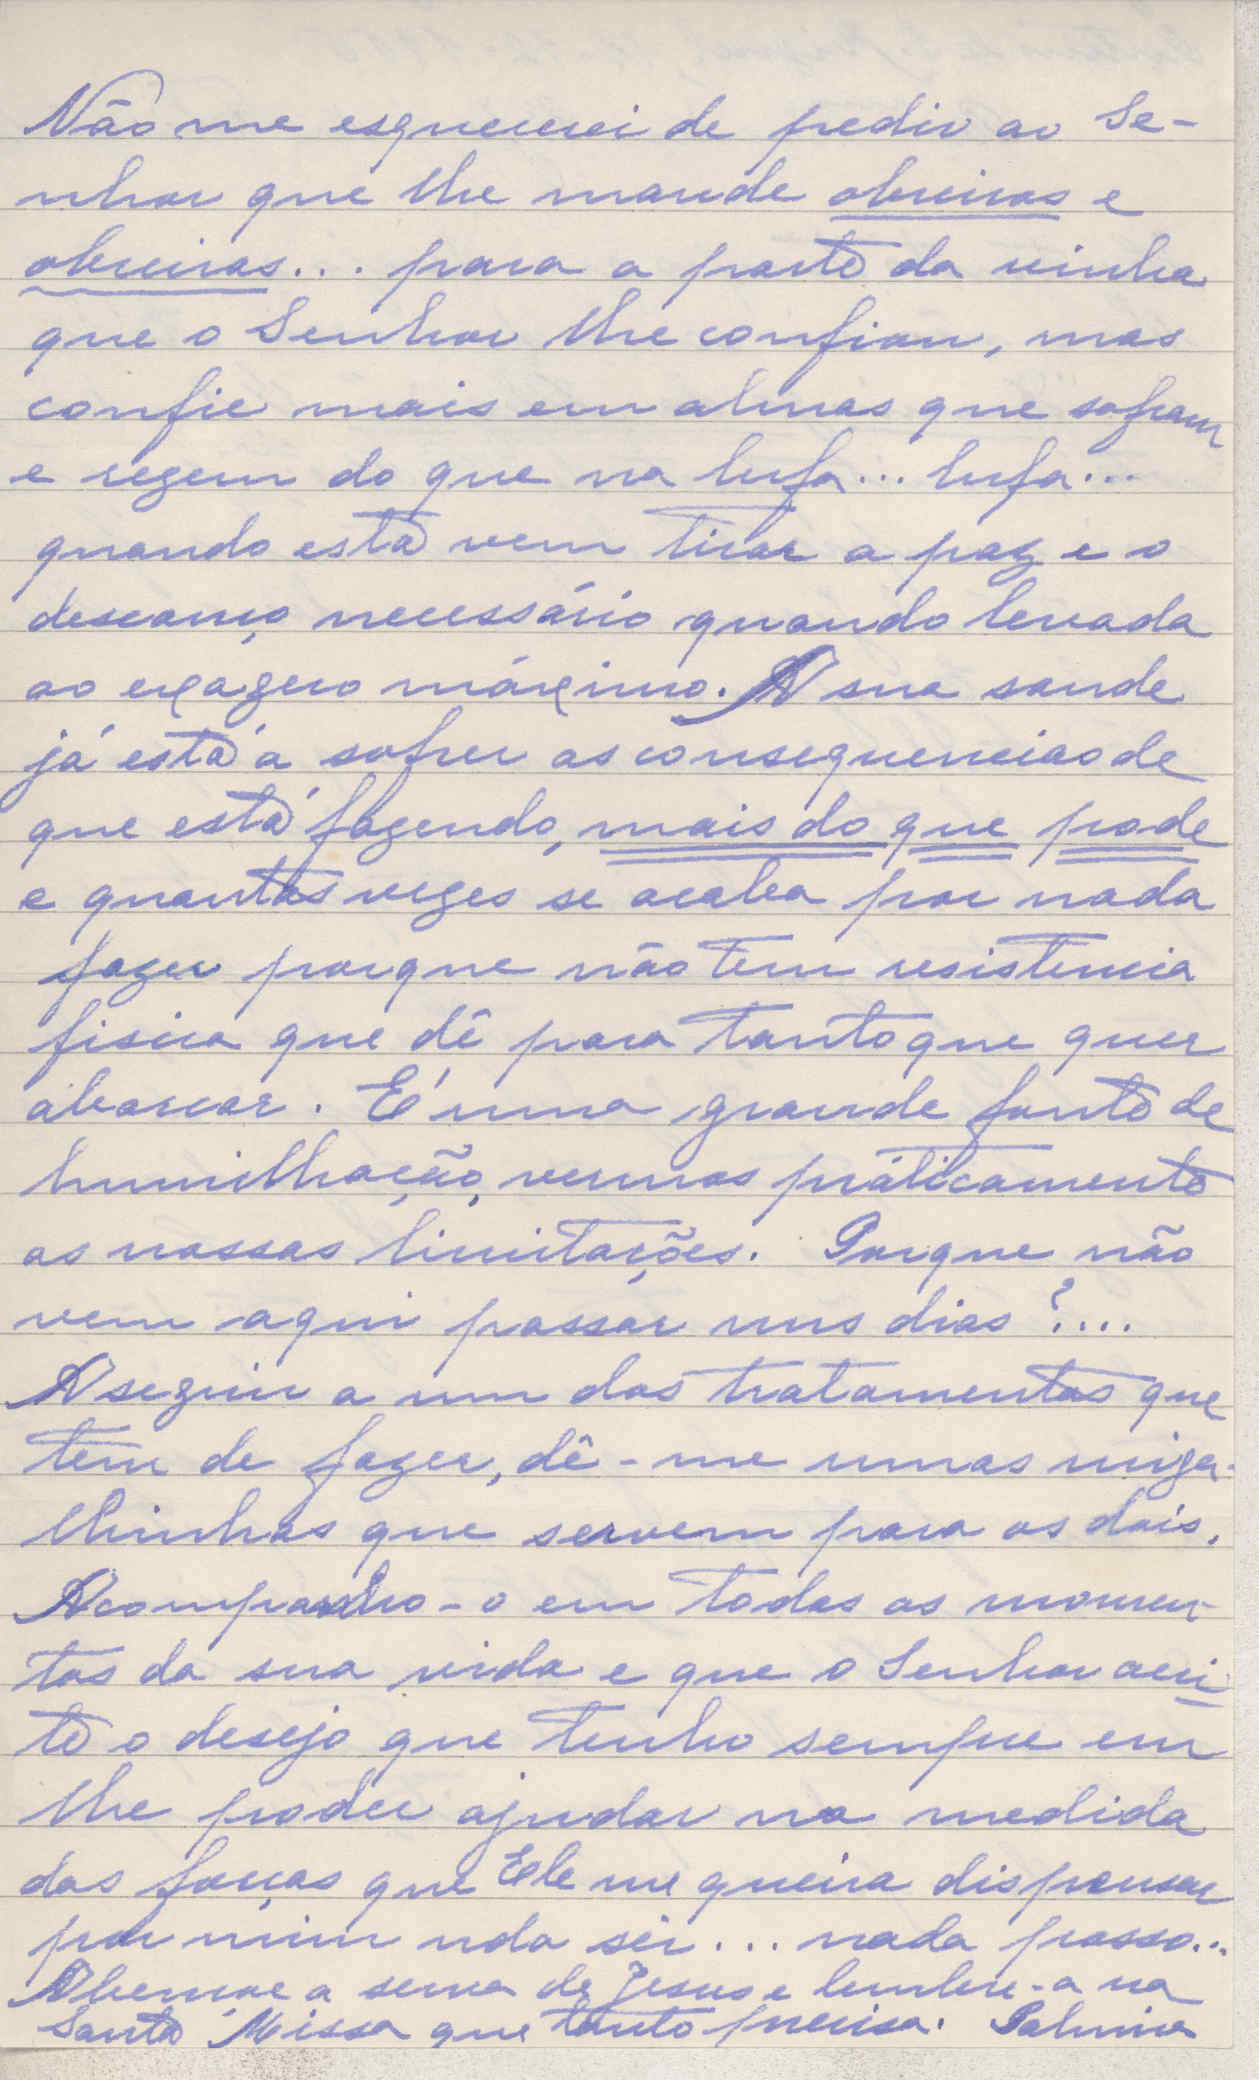 Não me esquecerei de pedir ao Se-
nhor que lhe mande obreiros e
obreiras... para a parte da vinha
que o Senhor lhe confiou, mas
confie mais em almas que sofram
e rezem do que na lufa... lufa...
quando esta vem tirar a paz e o
descanço necessário quando levada
ao exagero máximo. A sua saude
já está a sofrer as consequencias de
que está fazendo, mais do que pode
e quantas vezes se acaba por nada
fazer porque não tem resistencia
fisica que dê para tanto que quer
abarcar. É uma grande fonte de
humilhação, vermos práticamente
as nossas limitações. Porque não
vem aqui passar uns dias?....
A seguir a um dos tratamentos que
tem de fazer, dê-me umas miga-
lhinhas que servem para os dois.
Acompanho-o em todos os momen-
tos da sua vida e que o Senhor acei-
te o desejo que tenho sempre em
lhe poder ajudar na medida
das forças que Ele me queira dispensar
por mim nda sei... nada posso...
Abençoe a serva de Jesus e lembre-a na
Santa Missa que tanto precisa. Palmira